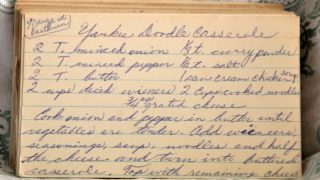 Margaret Eastham
Yankee Doodle Casserole
2 T. minced onion ½ t. curry powder
2 T. minced pepper ½ t. salt
2 T. butter 1 can cream chicken soup
2 cups diced wieners 2 cups cooked noodles
¾ cup grated cheese
Cook onion and pepper in butter until
vegetables are tender. Add wieners,
seasonings, soup, noodles and half
the cheese and turn into buttered
casserole. Top with remaining cheese